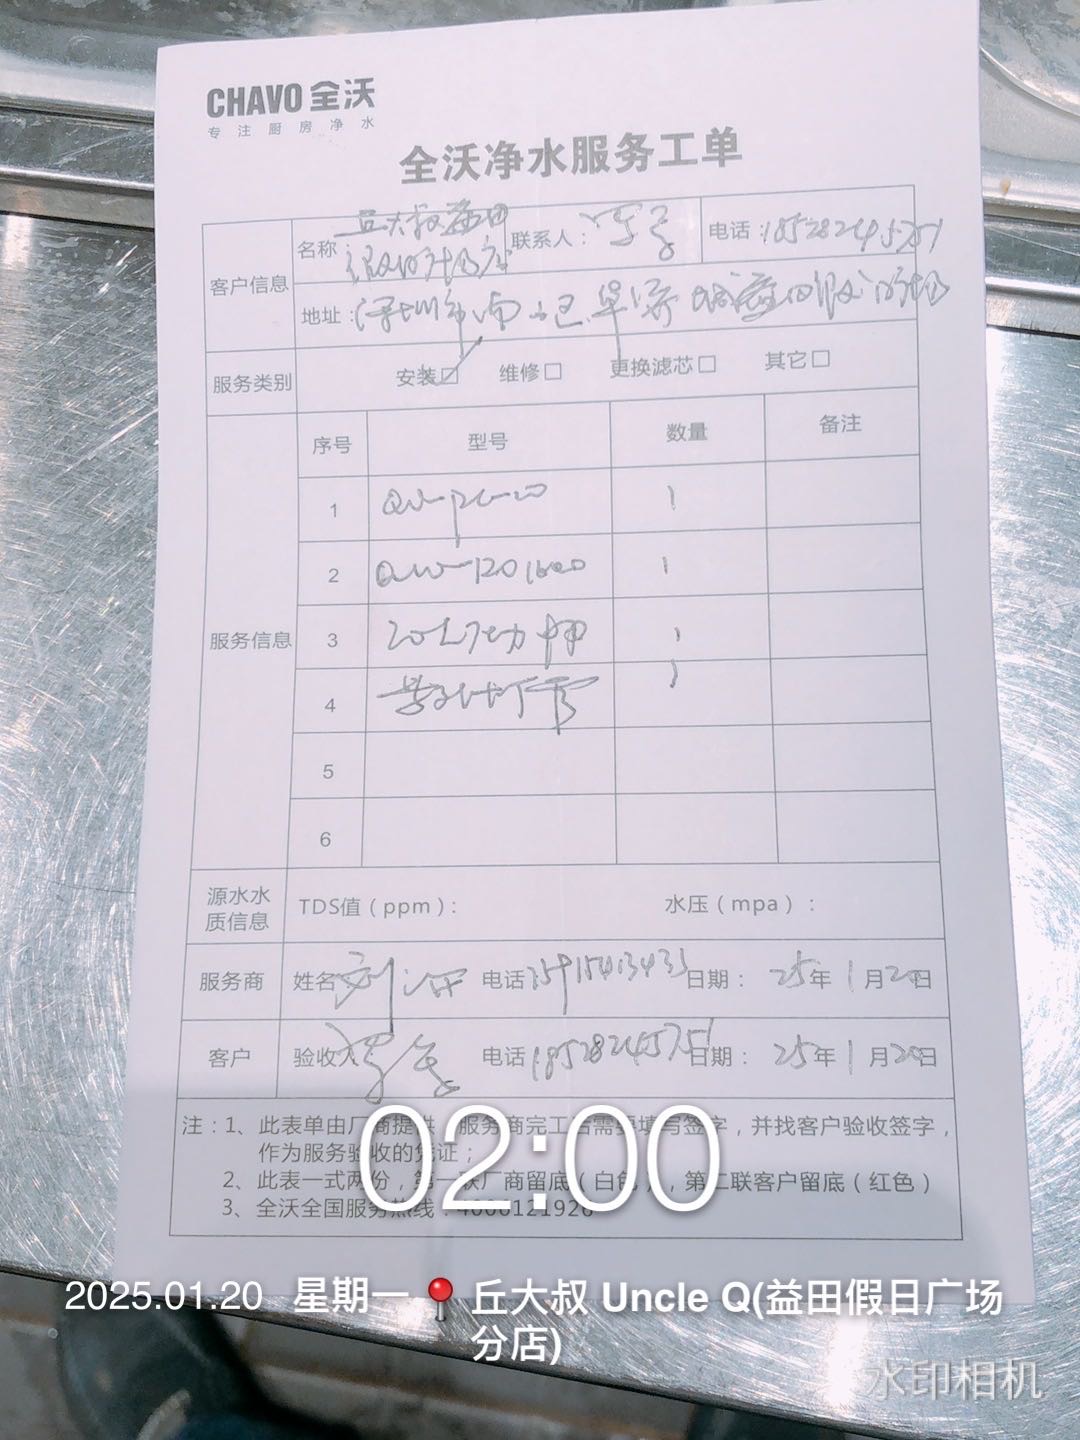 CHAVO 全沃
专注厨房净水
全沃净水服务工单
客户信息
名称 丘大叔益田假日广场店 联系人： 电话：18528245751
地址：深圳市南山区华侨城益田假日广场
服务类别 安装☑ 维修□ 更换滤芯□ 其它□
服务信息
序号 型号 数量 备注
1 1
2 1
3 1
4 1
5
6
源水水质信息 TDS值（ppm）： 水压（mpa）：
服务商 姓名 刘 电话 日期： 25年 1月20日
客户 验收人 电话 18528245751 日期： 25年 1月20日
注：1、此表单由厂商提供 服务商完工后需要填写签字，并找客户验收签字，
作为服务验收的凭证；
2、此表一式两份，第一联厂商留底（白色），第二联客户留底（红色）
3、全沃全国服务热线：4000121926
02:00
2025.01.20 星期一 丘大叔 Uncle Q(益田假日广场
分店)
水印相机